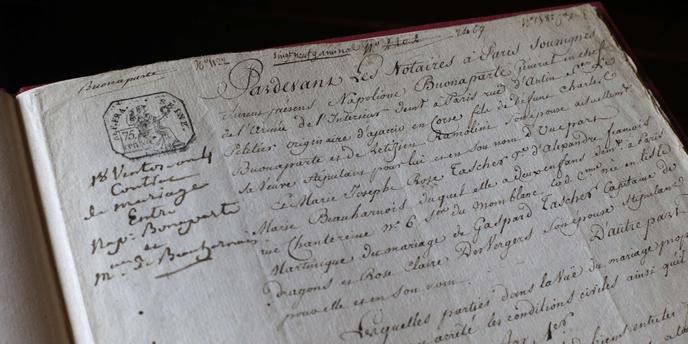 Buonaparte
Pardevant Les Notaires à Paris Soussignés
furent présens Napolione Buonaparte général en chef
de l'Armée de l'Interieur demt à Paris rue d'Antin
Pelitier originaire d'ajaccio en Corse fils de défunt Charles
Buonaparte et de Letizien Ramolini son épouse actuellement
Sa Veuve stipulant pour lui et en son nom D'une part
Et Marie Joseph Rose Tascher Ve d'alexandre françois
Marie Beauharnois duquel elle a deux enfans demt à Paris
rue Chantereine no 6 son du Montblanc lad. Cne née en l'isle
Martinique du mariage de Gaspard Tascher Capitaine de
dragons et Rose Claire Des Vergers son épouse stipulante
pour elle et en son nom D'autre part
Lesquelles parties dans la Vuë du mariage
arrêté les conditions civiles ainsi qu'il
Art. 1er.
RÉP. FRA.
75
cen
18 Ventose an 4
Contrat
de mariage
Entre
Nap. Bonaparte
et
Mme de Beauharnais